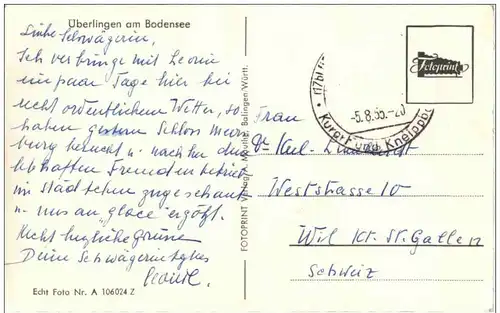 Überlingen am Bodensee
Liebe Schwägerin,
Ich verbringe mit Leonie
ein paar Tage hier bei
recht ordentlichem Wetter, so
haben gestern Schloss Meers-
burg besucht u. nachher dem
lebhaften Fremdenbetrieb
im Städtchen zugeschaut
u. uns an "glace" ergötzt.
Recht herzliche Grüsse
Deine Schwägerin
Echt Foto Nr. A 106024 Z
FOTOPRINT Verlag A. Balingen-Württ.
-5.8.55.-20
Kurort und Kneippb
Fotoprint
Frau
Weststrasse 10
Wil Kt. St. Gallen
Schweiz